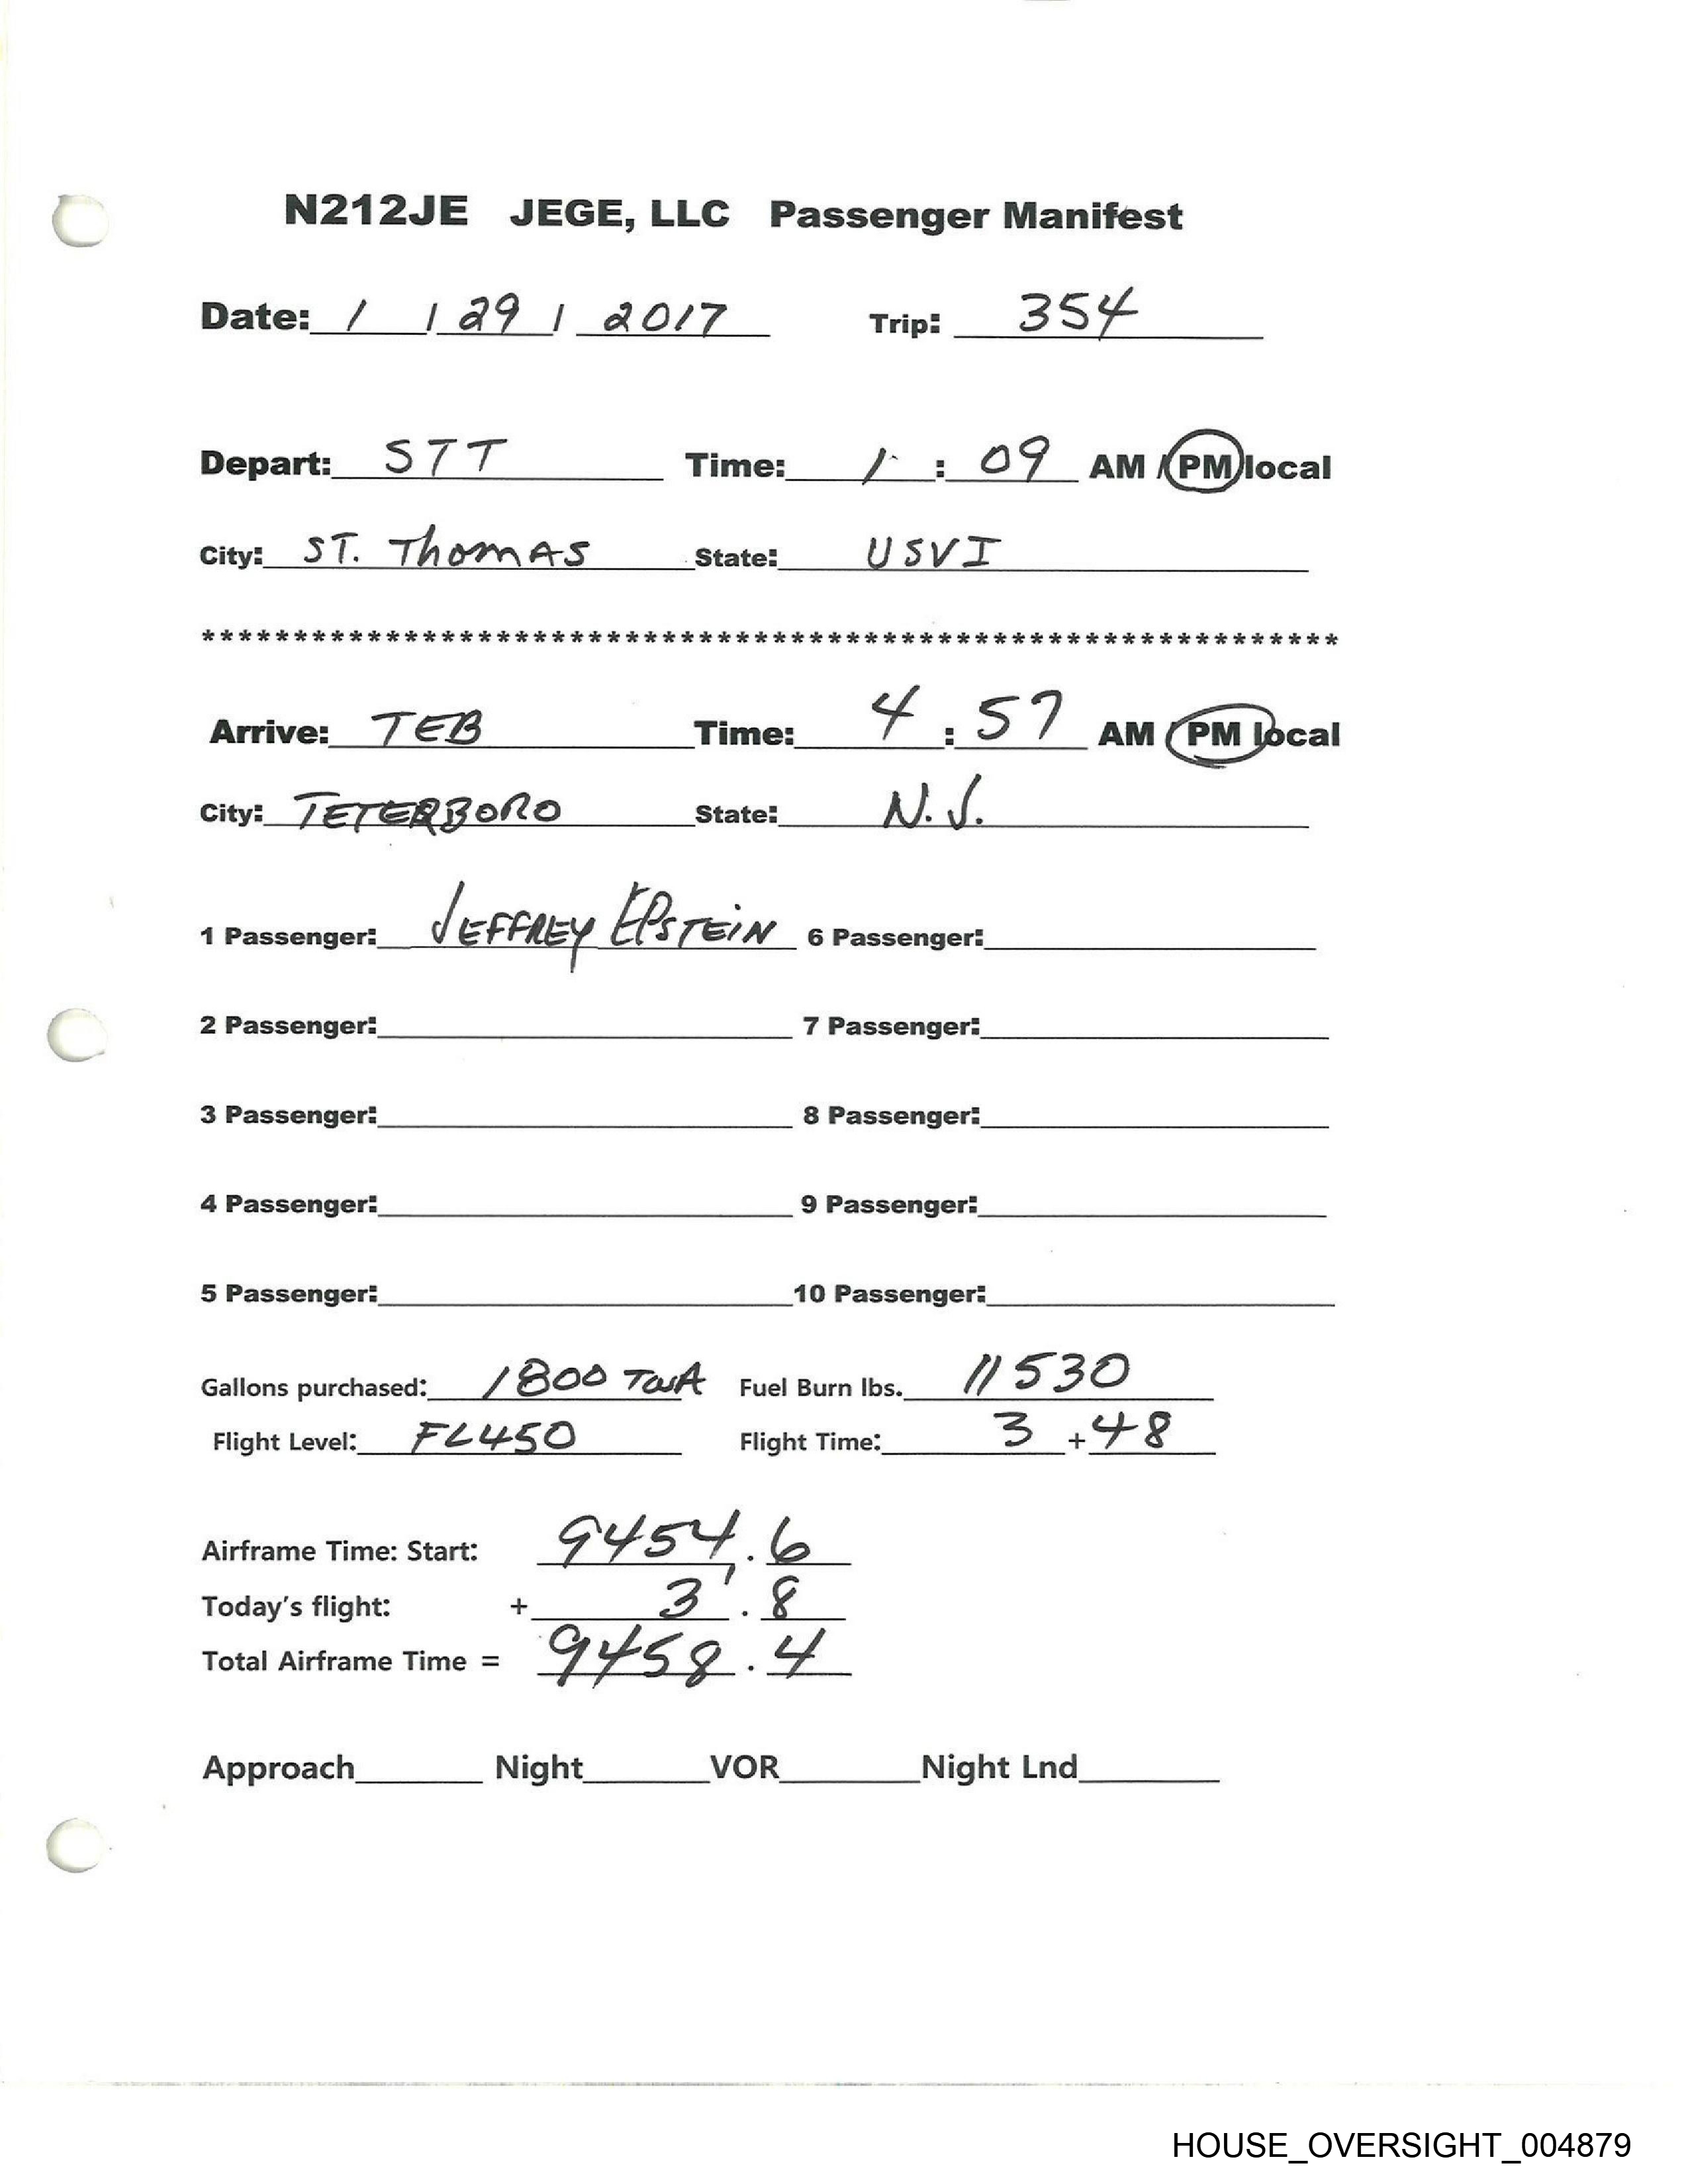 N212JE JEGE, LLC Passenger Manifest
Date: 1 / 29 / 2017 Trip: 354
Depart: STT Time: 1 : 09 AM / PM local
City: ST. Thomas State: USVI
**************************************************************
Arrive: TEB Time: 4 : 57 AM / PM local
City: TETERBORO State: N.J.
1 Passenger: JEFFREY EPSTEIN 6 Passenger:
2 Passenger: 7 Passenger:
3 Passenger: 8 Passenger:
4 Passenger: 9 Passenger:
5 Passenger: 10 Passenger:
Gallons purchased: 1800 Fuel Burn lbs. 11530
Flight Level: FL450 Flight Time: 3 + 48
Airframe Time: Start: 9454.6
Today's flight: + 3.8
Total Airframe Time = 9458.4
Approach Night VOR Night Lnd
HOUSE_OVERSIGHT_004879